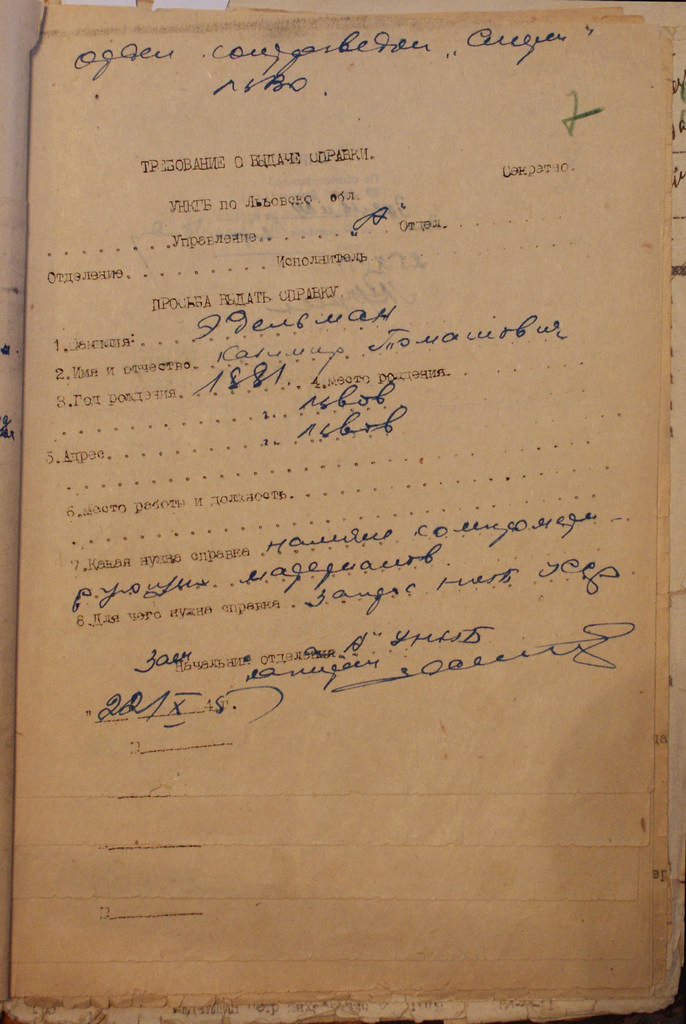 отдел контрразведки „Смерш"
ЛьВО.
7
ТРЕБОВАНИЕ О ВЫДАЧЕ СПРАВКИ.
Секретно.
УНКГБ по Львовско обл.
. . . . . . . Управление. . . . . . „А" Отдел.
Отделение. . . . . . . . . . Исполнитель
ПРОСЬБА ВЫДАТЬ СПРАВКУ
1.Фамилия: . . Эдельман
2.Имя и отчество. Казимир Томашович
3.Год рождения. 1881. 4.место рождения. . . .
Львов
5.Адрес. . . . . . . . . Львов
6.место работы и должность. . . . . . . .
7.Какая нужна справка наличие компромети-
рующих материалов
8.Для чего нужна справка . Запрос НКГБ УССР
Зам Начальник отделения „А" УНКГБ
капитан
"20/X 45г.